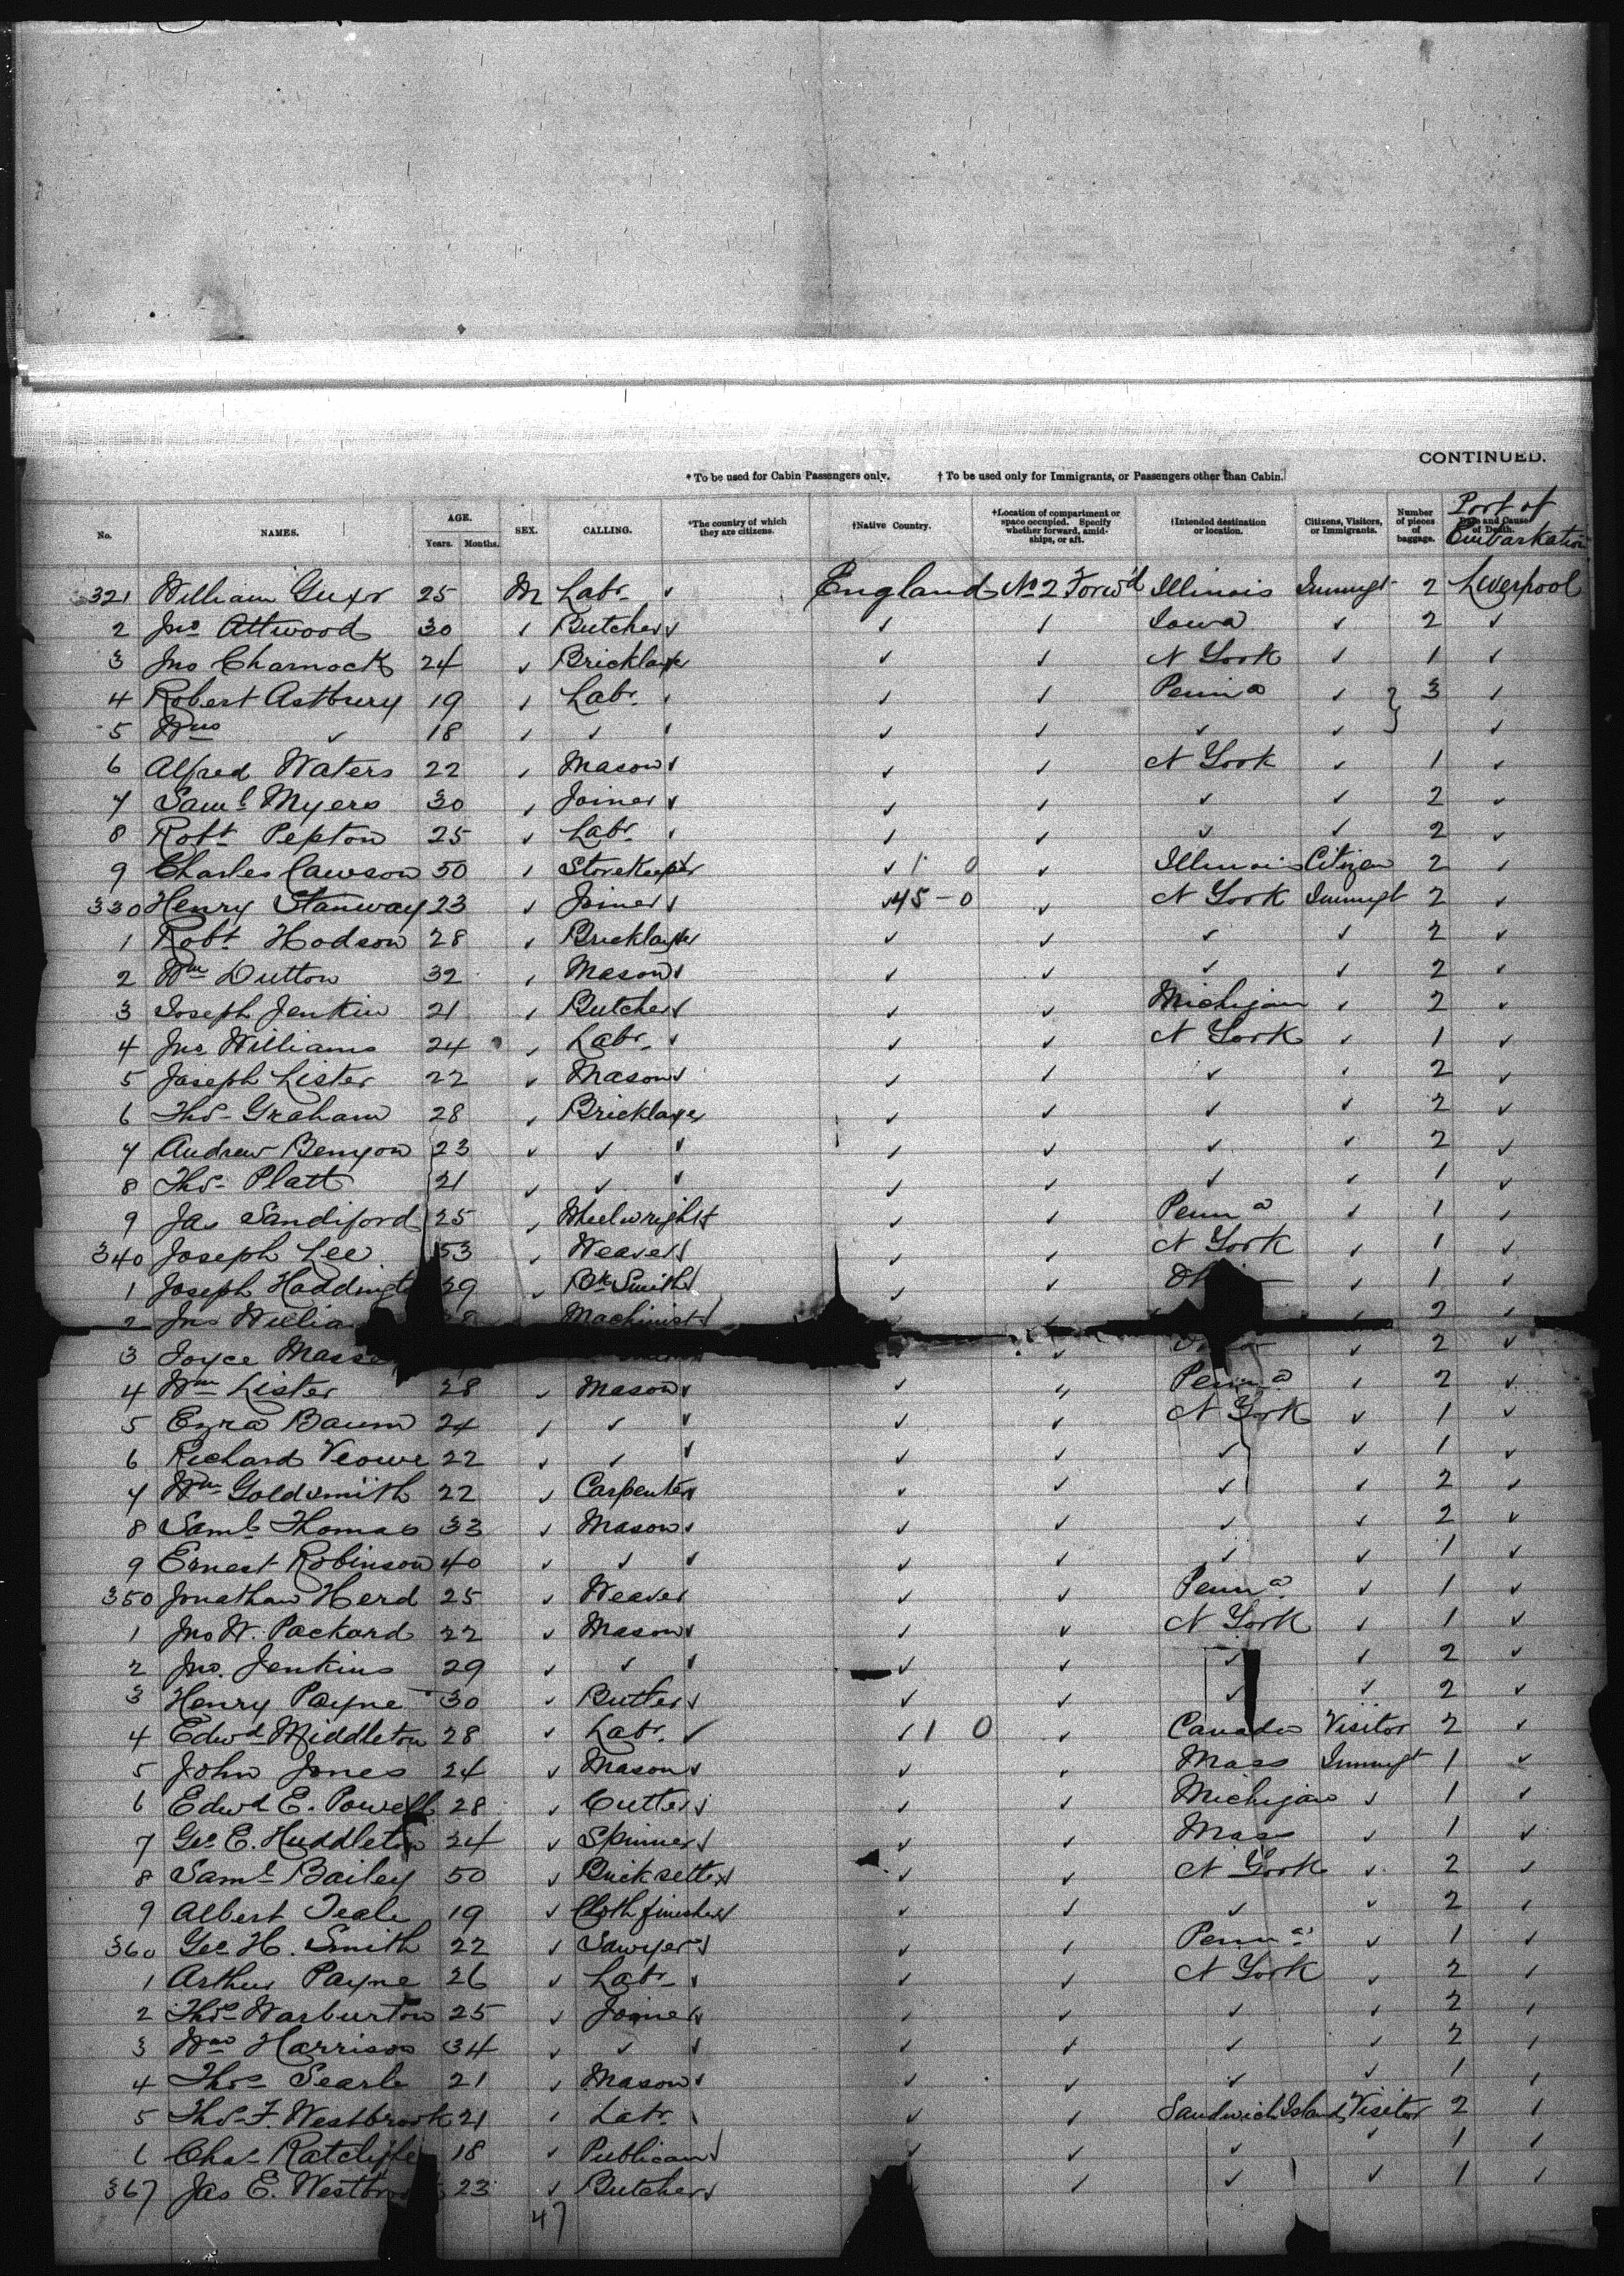 CONTINUED.
* To be used for Cabin Passengers only. † To be used only for Immigrants, or Passengers other than Cabin.
No. NAMES. AGE. Years. Months. SEX. CALLING. *The country of which they are citizens. †Native Country. †Location of compartment or space occupied. Specify whether forward, amidships, or aft. †Intended destination or location. Citizens, Visitors, or Immigrants. Number of pieces of baggage. Date and Cause of Death. Port of Embarkation
321 William 25 M Labr. ✓ England No 2 Forw'd Illinois Immigt 2 Liverpool
2 Jno Attwood 30 ✓ Butcher ✓ ✓ ✓ Iowa ✓ 2 ✓
3 Jno Charnock 24 ✓ Bricklayer ✓ ✓ N York ✓ 1 ✓
4 Robert Astbury 19 ✓ Labr. ✓ ✓ ✓ Penna ✓ } 3 ✓
5 Wm ✓ 18 ✓ ✓ ✓ ✓ ✓ ✓ ✓ ✓
6 Alfred Waters 22 ✓ Mason ✓ ✓ ✓ N York ✓ 1 ✓
7 Saml Myers 30 ✓ Joiner ✓ ✓ ✓ ✓ ✓ 2 ✓
8 Robt Pepton 25 ✓ Labr. ✓ ✓ ✓ ✓ ✓ 2 ✓
9 Charles Cawson 50 ✓ Storekeeper ✓ 1 0 ✓ Illinois Citizen 2 ✓
330 Henry Stanway 23 ✓ Joiner ✓ ✓ 45 - 0 ✓ N York Immigt 2 ✓
1 Robt Hodson 28 ✓ Bricklayer ✓ ✓ ✓ ✓ 2 ✓
2 Wm Dutton 32 ✓ Mason ✓ ✓ ✓ ✓ ✓ 2 ✓
3 Joseph Jenkin 21 ✓ Butcher ✓ ✓ ✓ Michigan ✓ 2 ✓
4 Jno Williams 24 ✓ Labr. ✓ ✓ ✓ N York ✓ 1 ✓
5 Joseph Lister 22 ✓ Mason ✓ ✓ ✓ ✓ ✓ 2 ✓
6 Thos Graham 28 ✓ Bricklayer ✓ ✓ ✓ ✓ 2 ✓
7 Andrew Benyon 23 ✓ ✓ ✓ ✓ ✓ ✓ ✓ 2 ✓
8 Thos Platt 21 ✓ ✓ ✓ ✓ ✓ ✓ ✓ 1 ✓
9 Jas Sandiford 25 ✓ Wheelwright ✓ ✓ Penna ✓ 1 ✓
340 Joseph Lee 53 ✓ Weaver ✓ ✓ ✓ N York ✓ 1 ✓
1 Joseph Haddingt 29 ✓ Bk Smith ✓ ✓ ✓ ✓ 1 ✓
2 Jno Machinist ✓ 2 ✓
3 Joyce ✓ ✓ 2 ✓
4 Wm Lister 28 ✓ Mason ✓ ✓ ✓ Penna ✓ 2 ✓
5 Ezra Baum 24 ✓ ✓ ✓ ✓ ✓ N York ✓ 1 ✓
6 Richard 22 ✓ ✓ ✓ ✓ ✓ ✓ ✓ 1 ✓
7 Wm Goldsmith 22 ✓ Carpenter ✓ ✓ ✓ ✓ 2 ✓
8 Saml Thomas 33 ✓ Mason ✓ ✓ ✓ ✓ ✓ 2 ✓
9 Ernest Robinson 40 ✓ ✓ ✓ ✓ ✓ ✓ ✓ 1 ✓
350 Jonathan Herd 25 ✓ Weaver ✓ ✓ Penna ✓ 1 ✓
1 Jno W. Packard 22 ✓ Mason ✓ ✓ ✓ N York ✓ 1 ✓
2 Jno. Jenkins 29 ✓ ✓ ✓ ✓ ✓ ✓ ✓ 2 ✓
3 Henry Payne 30 ✓ Butler ✓ ✓ ✓ ✓ ✓ 2 ✓
4 Edwd Middleton 28 ✓ Labr. ✓ ✓ 1 0 ✓ Canada Visitor 2 ✓
5 John Jones 24 ✓ Mason ✓ ✓ ✓ Mass Immigt 1 ✓
6 Edwd E. Powell 28 ✓ Cutter ✓ ✓ ✓ Michigan ✓ 1 ✓
7 Geo E. Huddleton 24 ✓ Spinner ✓ ✓ ✓ Mass ✓ 1 ✓
8 Saml Bailey 50 ✓ Bricksetter ✓ ✓ N York ✓ 2 ✓
9 Albert Teale 19 ✓ Cloth finisher ✓ ✓ ✓ ✓ 2 ✓
360 Geo H. Smith 22 ✓ Sawyer ✓ ✓ ✓ Penna ✓ 1 ✓
1 Arthur Payne 26 ✓ Labr. ✓ ✓ ✓ N York ✓ 2 ✓
2 Thos Warburton 25 ✓ Joiner ✓ ✓ ✓ ✓ ✓ 2 ✓
3 Wm Harrison 34 ✓ ✓ ✓ ✓ ✓ ✓ ✓ 2 ✓
4 Thos Searle 21 ✓ Mason ✓ ✓ ✓ ✓ ✓ 1 ✓
5 Thos F. Westbrook 21 ✓ Labr. ✓ ✓ ✓ Sandwich Islands Visitor 2 ✓
6 Chas Ratcliffe 18 ✓ Publican ✓ ✓ ✓ ✓ ✓ 1 ✓
367 Jas E. Westbro 23 ✓ Butcher ✓ ✓ ✓ ✓ 1 ✓
47